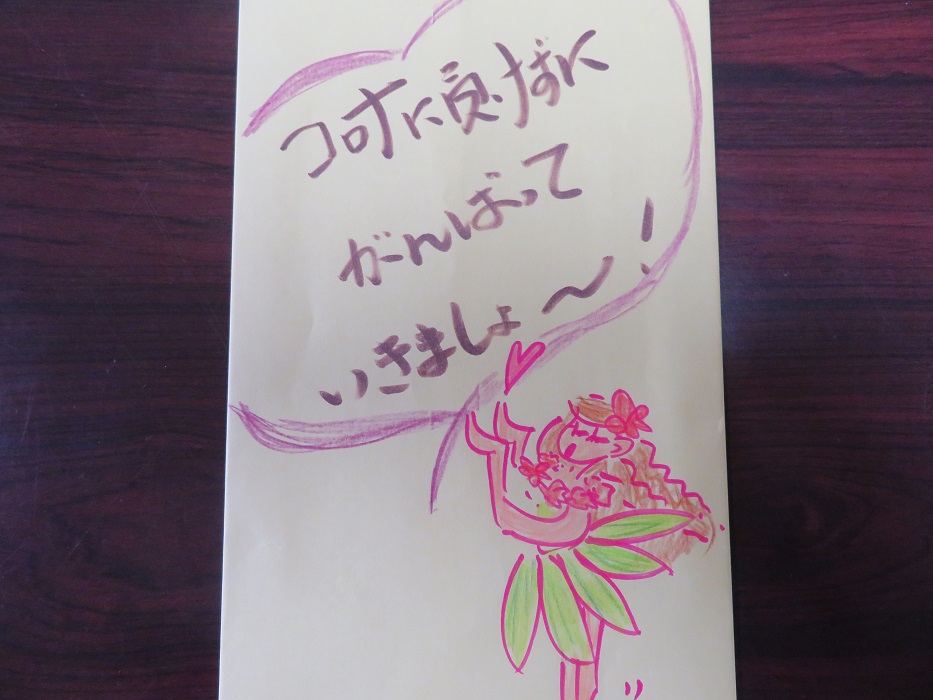 コロナに負けずに
がんばって
いきましょ〜!